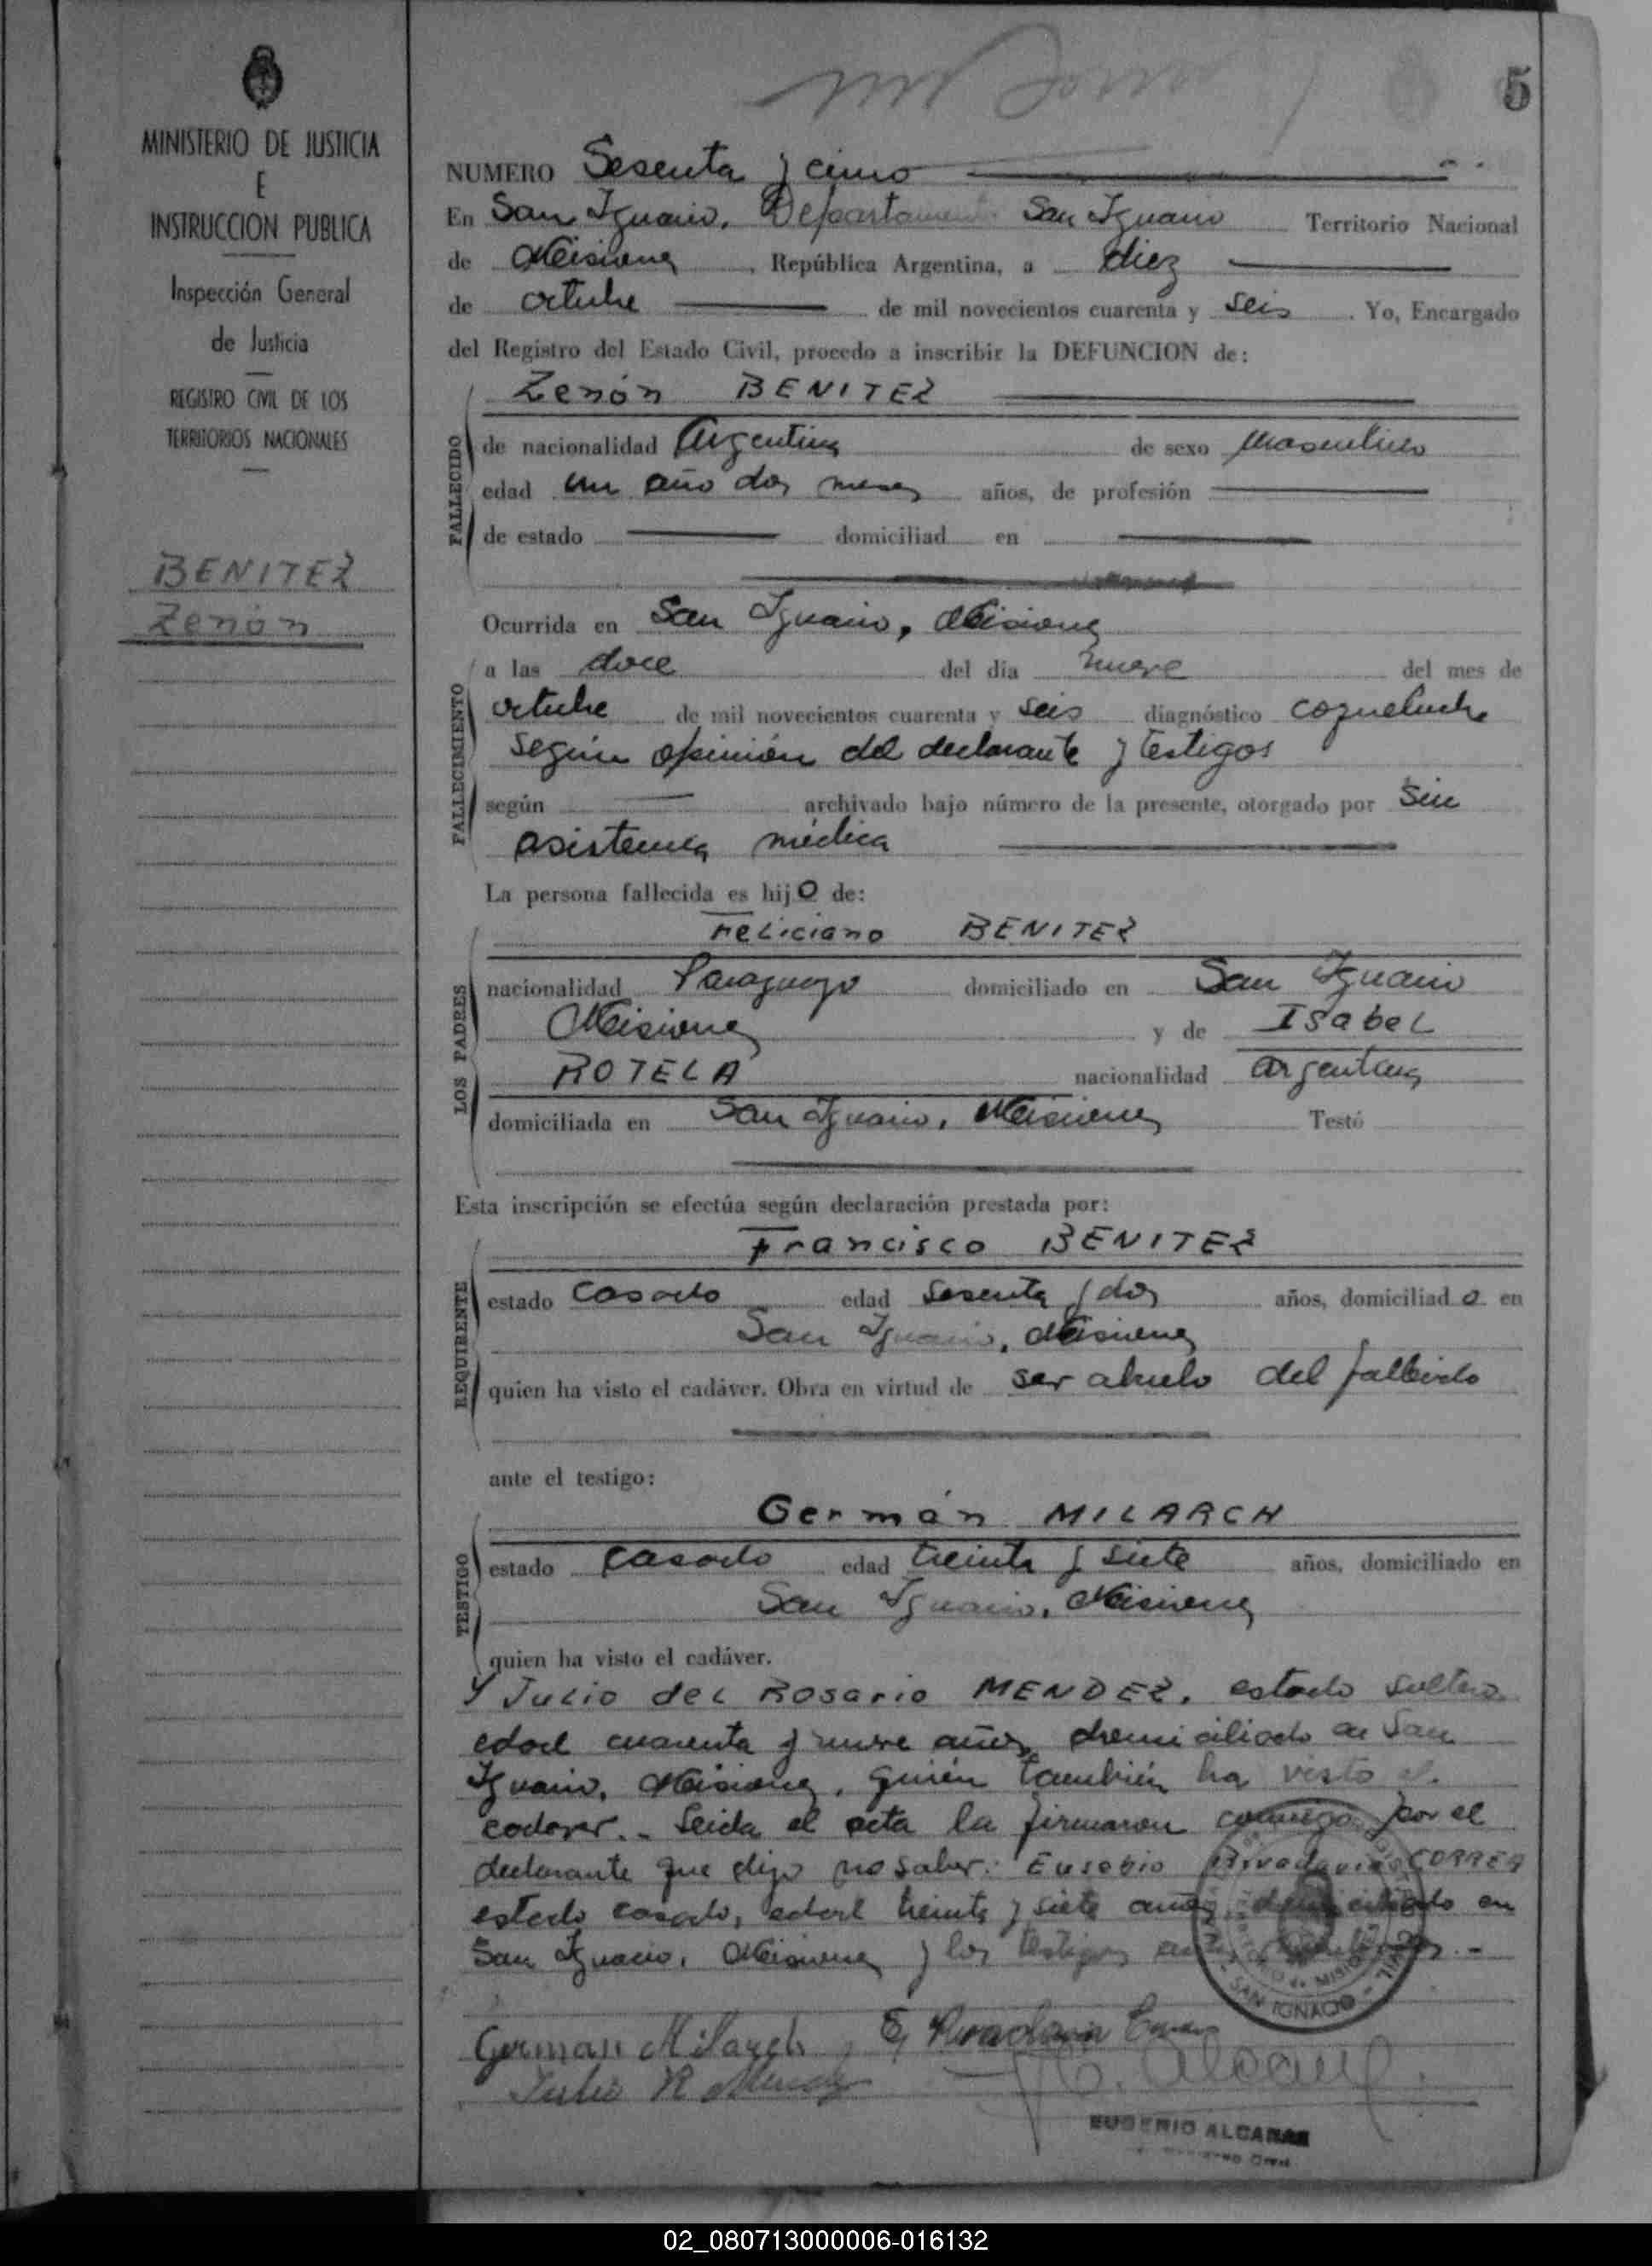 5
MINISTERIO DE JUSTICIA
E
INSTRUCCION PUBLICA
Inspección General
de Justicia
REGISTRO CIVIL DE LOS
TERRITORIOS NACIONALES
BENITEZ
Zenón
NUMERO Sesenta y cinco
En San Ignacio, Departamento San Ignacio Territorio Nacional
de Misiones, República Argentina, a diez
de octubre de mil novecientos cuarenta y seis. Yo, Encargado
del Registro del Estado Civil, procedo a inscribir la DEFUNCION de:
Zenón BENITEZ
FALLECIDO
de nacionalidad Argentina de sexo masculino
edad un año dos meses años, de profesión
de estado domiciliad en
Ocurrida en San Ignacio, Misiones
FALLECIMIENTO
a las doce del día nueve del mes de
octubre de mil novecientos cuarenta y seis diagnóstico coqueluche
según opinión del declarante y testigos
según archivado bajo número de la presente, otorgado por Sin
asistencia médica
La persona fallecida es hijo de:
LOS PADRES
Feliciano BENITEZ
nacionalidad Paraguayo domiciliado en San Ignacio
Misiones y de Isabel
ROTELA nacionalidad argentina
domiciliada en San Ignacio, Misiones Testó
Esta inscripción se efectúa según declaración prestada por:
REQUIRENTE
Francisco BENITEZ
estado casado edad sesenta y dos años, domiciliado en
San Ignacio, Misiones
quien ha visto el cadáver. Obra en virtud de ser abuelo del fallecido
ante el testigo:
TESTIGO
Germán MILARCH
estado casado edad treinta y siete años, domiciliado en
San Ignacio, Misiones
quien ha visto el cadáver.
Y Julio del Rosario MENDEZ, estado soltero
edad cuarenta y nueve años, domiciliado en San
Ignacio, Misiones, quién también ha visto el
cadaver.- Leida el acta la firmaron conmigo por el
declarante que dijo no saber: Eusebio Rivadavia CORREA
estado casado, edad treinta y siete años domiciliado en
San Ignacio, Misiones y los testigos
SAN IGNACIO
CIVIL
MISIONES
German Milarch E. Rivadavia Correa
Julio R Mendez E. Alcaraz
EUGENIO ALCARAZ
02_080713000006-016132